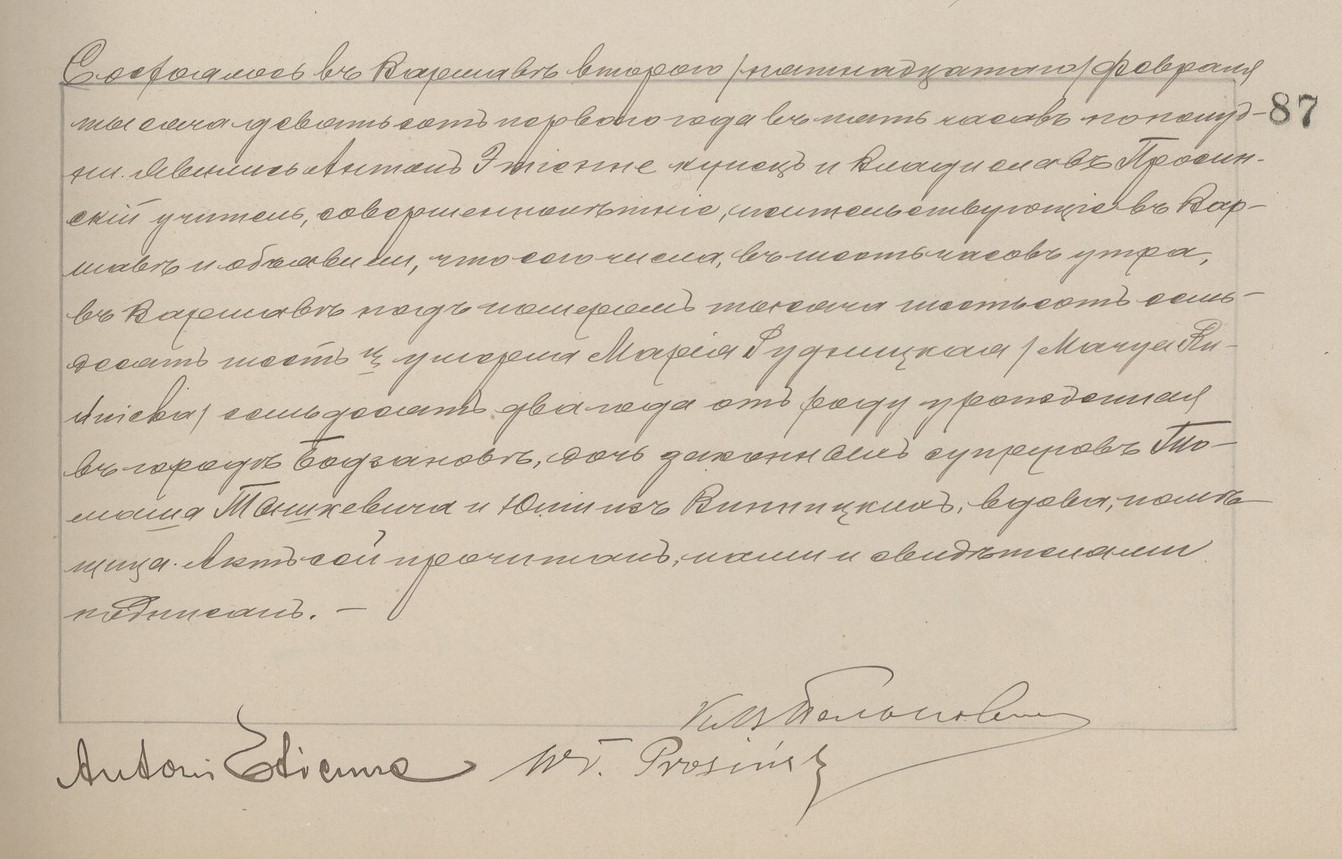 Состоялось въ Варшавѣ второго /пятнадцатаго/ февраля
тысяча девятьсотъ перваго года въ пять часовъ пополуд- 87
ни. Явились Антонъ Этіенне купецъ и Владиславъ Просин-
скій учитель, совершеннолѣтніе, жительствующіе въ Вар-
шавѣ и объявили, что сего числа, въ шесть часовъ утра,
въ Варшавѣ подъ номеромъ тысяча шестьсотъ семь-
десятъ шесть ц умерла Марія Рудницкая /
/ семьдесятъ два года отъ роду урожденная
въ городѣ Бодзановѣ, дочь законныхъ супруговъ То-
маша Ташкевича и Юліи изъ Винницкихъ, вдова, помѣ-
щица. Актъ сей прочитанъ, нами и свидѣтелями
подписанъ. —
Antoni Etienne Wł. Prosiński